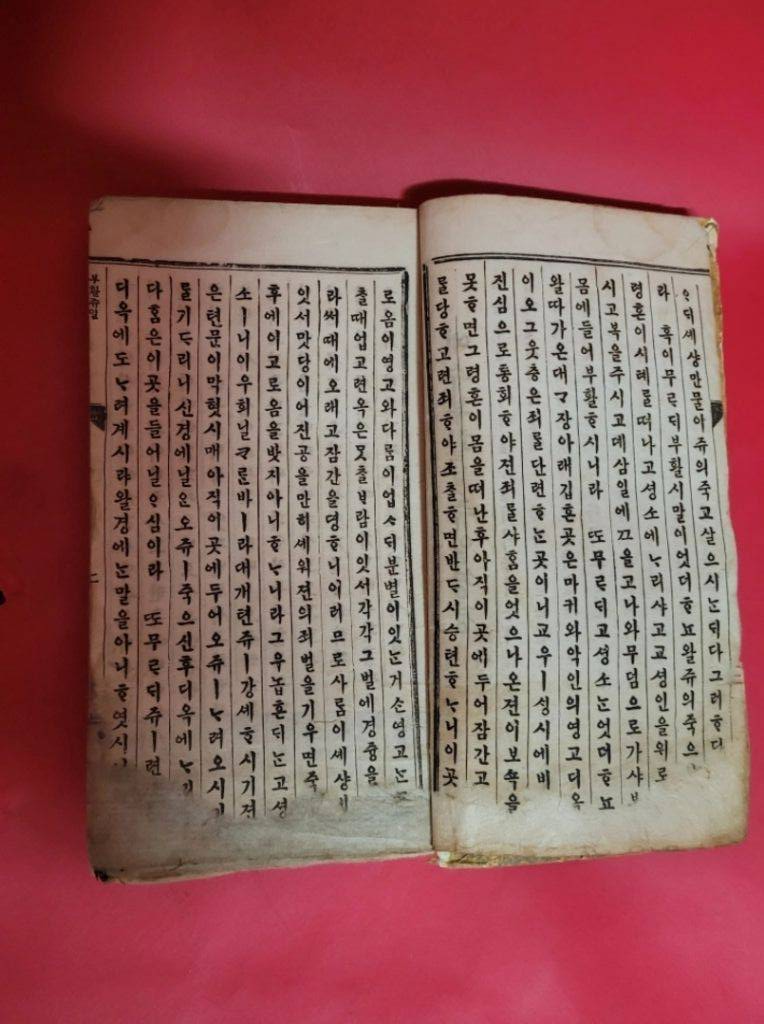 ᄋᆞᄃᆡ셰샹만물아쥬의죽고살으시ᄂᆞᆫᄃᆡ다그러ᄒᆞ디
라 혹이무ᄅᆞᄃᆡ부활시말이엇더ᄒᆞ뇨왈쥬의죽으
령혼이시톄ᄅᆞᆯ떠나고셩소에ᄂᆞ리샤고교셩인을위로
시고복을주시고데삼일에ᄭᅳ을고나와무덤으로가샤
몸에들어부활ᄒᆞ시니라 ᄯᅩ무ᄅᆞᄃᆡ고셩소ᄂᆞᆫ엇더ᄒᆞ뇨
왈따가온대ᄀᆞ장아래깁흔곳은마귀와악인의영고디옥
이오그웃층은죄ᄅᆞᆯ단련ᄒᆞᄂᆞᆫ곳이니교우ㅣ셩시에비
진심으로통회ᄒᆞ야젼죄ᄅᆞᆯ샤홈을엇으나온젼이보쇽을
못ᄒᆞ면그령혼이몸을떠난후아직이곳에두어잠간고
ᄅᆞᆯ당ᄒᆞ고련죄ᄒᆞ야조찰ᄒᆞ면반ᄃᆞ시승텬ᄒᆞᄂᆞ니이곳
로옴이영고와다ᄅᆞᆷ이업ᄉᆞᄃᆡ분별이잇ᄂᆞᆫ거ᄉᆞᆫ영고ᄂᆞᆫ
츌때업고련옥은못츌ᄇᆞ람이잇서각각그벌에경즁을
라써때에오래고잠간을뎡ᄒᆞ니이러므로사ᄅᆞᆷ이셰샹
잇서맛당이어진공을만히셰워젼의죄벌을기우면죽
후에이고로옴을밧지아니ᄒᆞᄂᆞ니라그우놉흔ᄃᆡᄂᆞᆫ고셩
소ㅣ니이우희닐ᄏᆞᄅᆞᆫ바ㅣ라대개텬쥬ㅣ강셰ᄒᆞ시기젼
은텬문이막혓시매아직이곳에두어오쥬ㅣᄂᆞ려오시기
ᄅᆞᆯ기ᄃᆞ리니신경에닐ᄋᆞᆫ오쥬ㅣ죽으신후디옥에ᄂᆞ리
다홈은이곳을들어닐ᄋᆞ심이라 ᄯᅩ무ᄅᆞᄃᆡ쥬ㅣ련
디옥에도ᄂᆞ려계시랴왈경에ᄂᆞᆫ말을아니ᄒᆞ엿시
부활쥬일